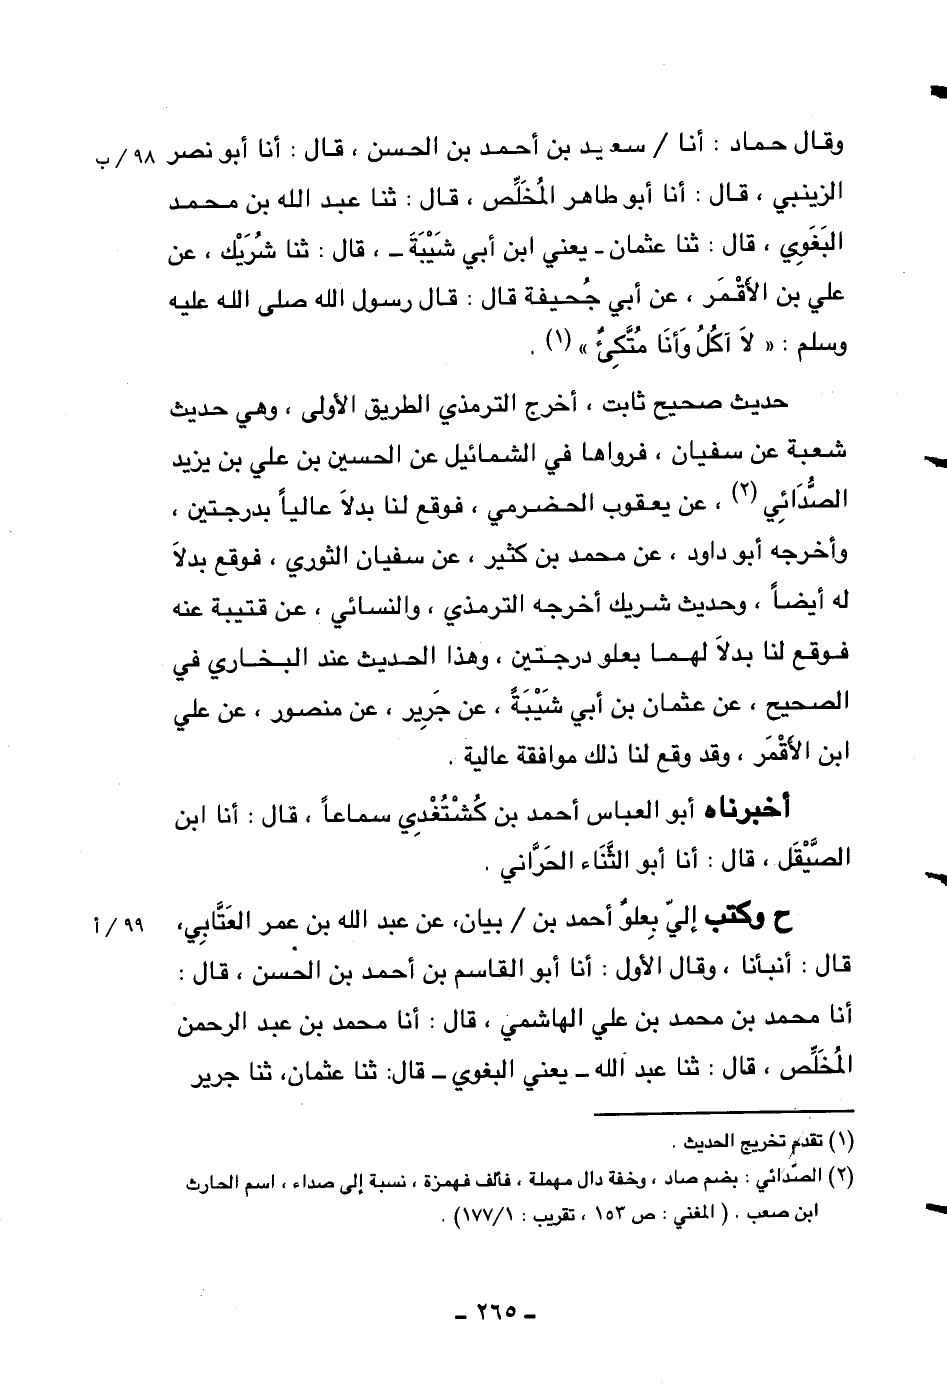 وقال حماد : أنا / سعيد بن أحمد بن الحسن ، قال : أنا أبو نصر ٩٨/ ب
الزينبي ، قال : أنا أبو طاهر المُخَلِّص ، قال : ثنا عبد الله بن محمد
البَغَوِي ، قال : ثنا عثمان ـ يعني ابن أبي شَيْبَةَ ـ ، قال : ثنا شُرَيْك ، عن
علي بن الأَقْمَر ، عن أبي جُحيفة قال : قال رسول الله صلى الله عليه
وسلم : « لاَ آكُلُ وَأَنَا مُتَّكِئٌ » (١) .
حديث صحيح ثابت ، أخرج الترمذي الطريق الأولى ، وهي حديث
شعبة عن سفيان ، فرواها في الشمائيل عن الحسين بن علي بن يزيد
الصُّدَائِي (٢) ، عن يعقوب الحضرمي ، فوقع لنا بدلاً عالياً بدرجتين ،
وأخرجه أبو داود ، عن محمد بن كثير ، عن سفيان الثوري ، فوقع بدلاً
له أيضاً ، وحديث شريك أخرجه الترمذي ، والنسائي ، عن قتيبة عنه
فوقع لنا بدلاً لهما بعلو درجتين ، وهذا الحديث عند البخاري في
الصحيح ، عن عثمان بن أبي شَيْبَةً ، عن جَرِير ، عن منصور ، عن علي
ابن الأَقْمَر ، وقد وقع لنا ذلك موافقة عالية .
أخبرناه أبو العباس أحمد بن كُشْتُغْدِي سماعاً ، قال : أنا ابن
الصَّيْقَل ، قال : أنا أبو الثَّنَاء الحَرَّاني .
ح وكتب إليّ بِعلوٌ أحمد بن / بيان، عن عبد الله بن عمر العَتَّابِي، ٩٩/ أ
قال : أنبأنا ، وقال الأول : أنا أبو القاسم بن أحمد بن الحسن ، قال :
أنا محمد بن محمد بن علي الهاشمي ، قال : أنا محمد بن عبد الرحمن
المُخَلِّص ، قال : ثنا عبد الله ـ يعني البغوي ـ قال: ثنا عثمان، ثنا جرير
(١) تقدم تخريج الحديث .
(٢) الصّدائي : بضم صاد ، وخفة دال مهملة ، فألف فهمزة ، نسبة إلى صداء ، اسم الحارث
ابن صعب . ( المغني : ص ١٥٣ ، تقريب : ١٧٧/١) .
ـ ٢٦٥ ـ